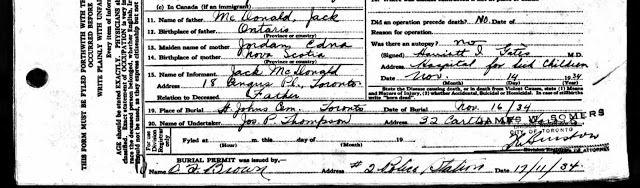 (c) In Canada (if an immigrant)
11. Name of father McDonald, Jack
12. Birthplace of father Ontario
(Province or country)
13. Maiden name of mother Jordan Edna
14. Birthplace of mother Nova Scotia
(Province or country)
15. Name of Informant Jack McDonald
Address 18 Angus Pl., Toronto
Relation to Deceased Father
19. Place of Burial St Johns Cem, Toronto Date of Burial Nov. 16/34
20. Name of Undertaker Jos. P. Thompson Address 32 Carl
JAMES W. SOMERS
CITY OF TORONTO
For use of Division Registrar only
Fyled at m. this day of 19
(Hour) (Month)
BURIAL PERMIT was issued by,
Name Brown Address # 2 Police Station Date 17/11/34.
Did an operation precede death? No. Date of
Reason for operation
Was there an autopsy? no
(Signed) Harriett J. M.D.
Address Hospital for Sick Children
Date Nov. 14 1934
(Month) (Day) (Year)
State the Disease causing death, or in death from Violent Causes, state (1) Means and Nature of Injury, (2) whether Accidental, Suicidal or Homicidal. In case of stillbirth write "born dead".
THIS FORM MUST BE FILED FORTHWITH WITH THE
OCCURRED BEFORE
WRITE PLAINLY WITH UNFA
Every item of infor